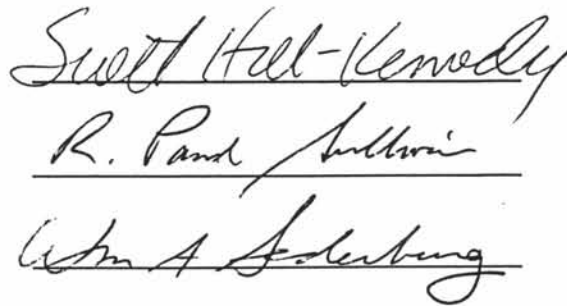 Scott Hill-Kennedy
R. Paul Sullivan
Wm A Sederburg